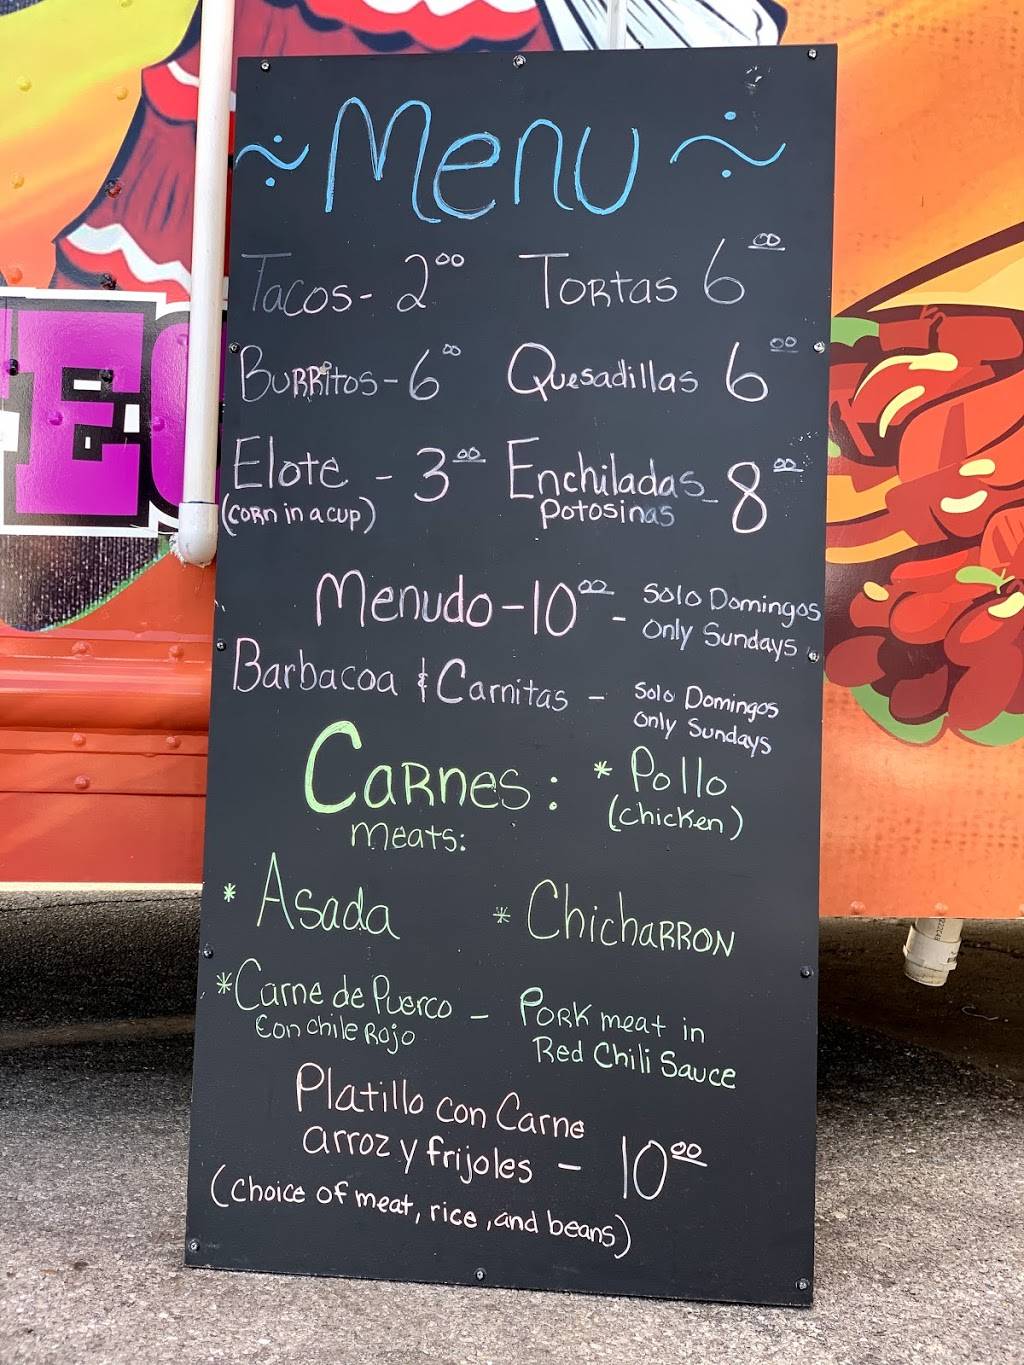 ~ Menu ~
Tacos - 2.00 Tortas 6.00
Burritos - 6.00 Quesadillas 6.00
Elote - 3.00 Enchiladas - 8.00
(corn in a cup) Potosinas
Menudo - 10.00 - Solo Domingos
Only Sundays
Barbacoa & Carnitas - Solo Domingos
Only Sundays
Carnes: * Pollo
meats: (chicken)
* Asada * Chicharron
* Carne de Puerco - Pork meat in
Con Chile Rojo Red Chili Sauce
Platillo con Carne
arroz y frijoles - 10.00
(Choice of meat, rice, and beans)